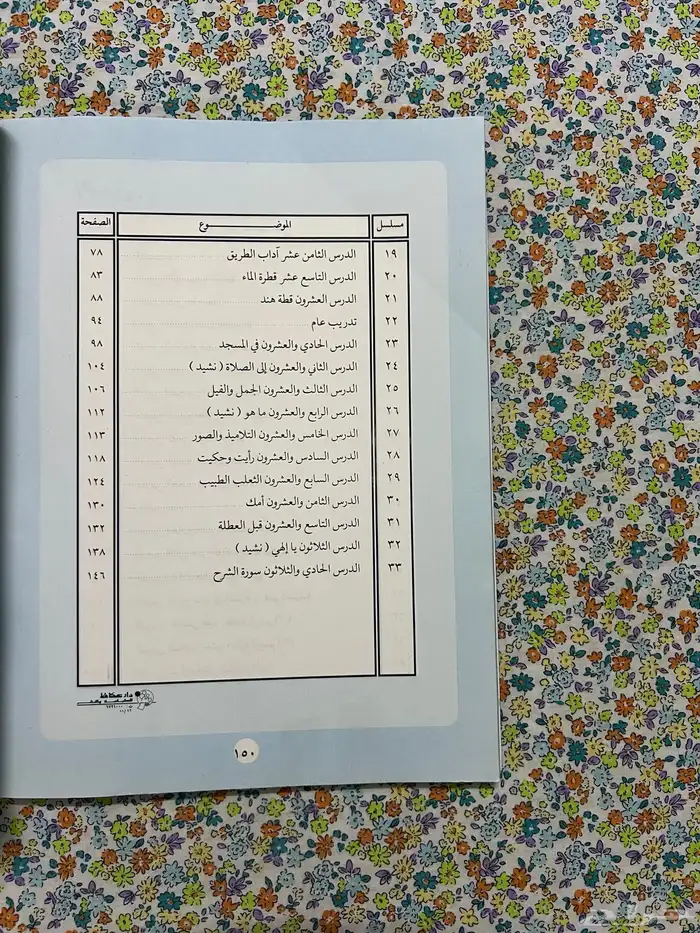 مسلسل الموضوع الصفحة
١٩ الدرس الثامن عشر آداب الطريق ٧٨
٢٠ الدرس التاسع عشر قطرة الماء ٨٣
٢١ الدرس العشرون قطة هند ٨٨
٢٢ تدريب عام ٩٤
٢٣ الدرس الحادي والعشرون في المسجد ٩٨
٢٤ الدرس الثاني والعشرون إلى الصلاة ( نشيد ) ١٠٤
٢٥ الدرس الثالث والعشرون الجمل والفيل ١٠٦
٢٦ الدرس الرابع والعشرون ما هو ( نشيد ) ١١٢
٢٧ الدرس الخامس والعشرون التلاميذ والصور ١١٣
٢٨ الدرس السادس والعشرون رأيت وحكيت ١١٨
٢٩ الدرس السابع والعشرون الثعلب الطبيب ١٢٤
٣٠ الدرس الثامن والعشرون أمك ١٣٠
٣١ الدرس التاسع والعشرون قبل العطلة ١٣٢
٣٢ الدرس الثلاثون يا إلهي ( نشيد ) ١٣٨
٣٣ الدرس الحادي والثلاثون سورة الشرح ١٤٦
دار عكاظ
١٥٠